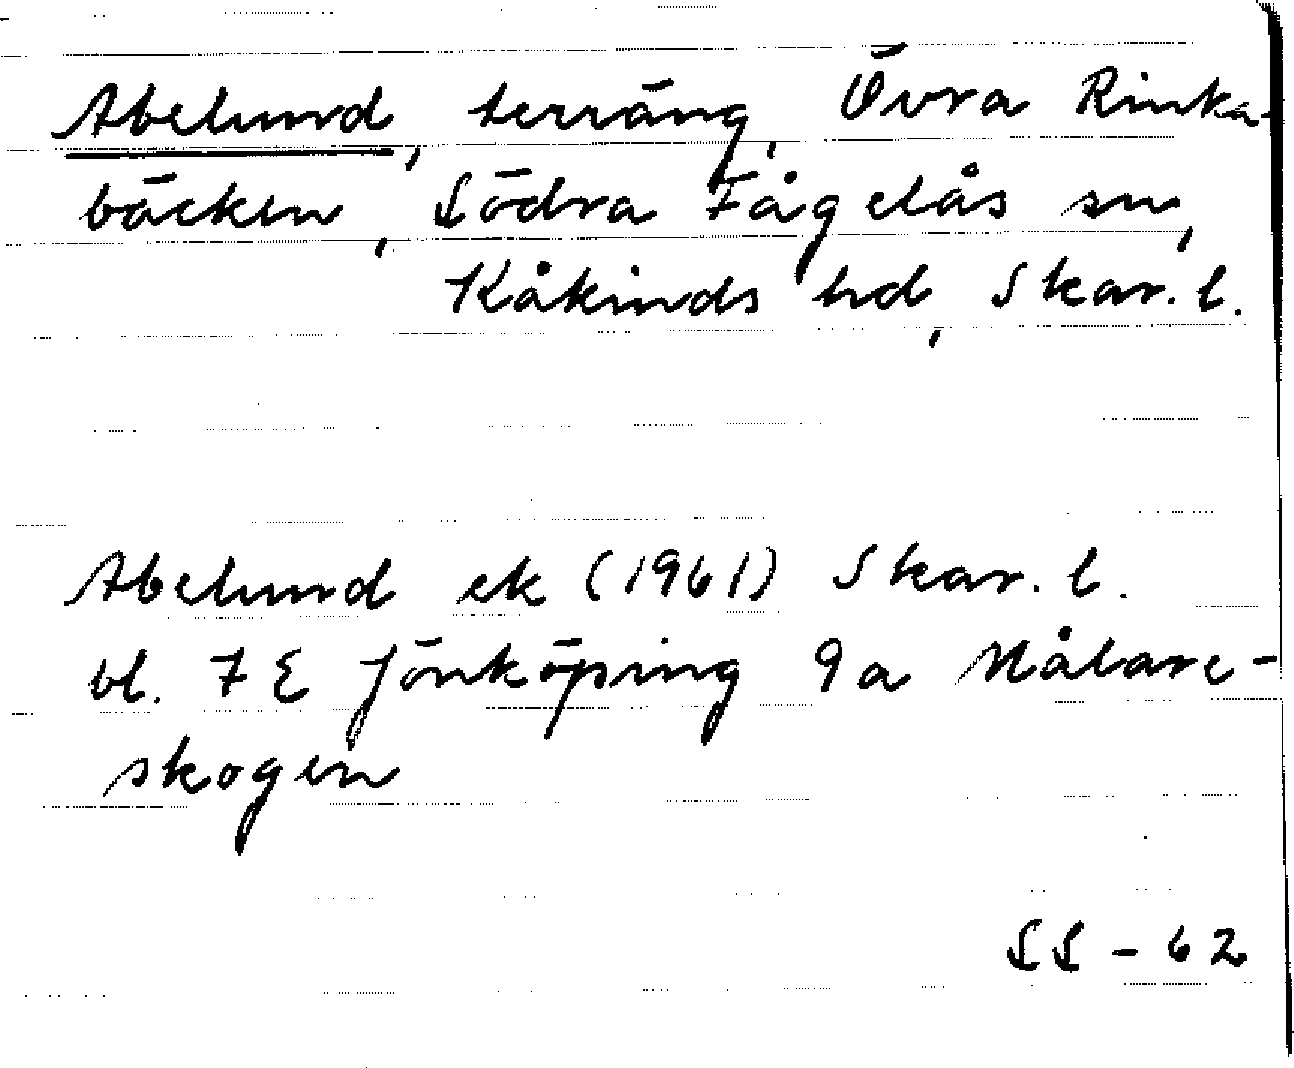 Abelund, terräng, Övra Rinka-
bäcken, Södra Fågelås sn,
Kåkinds hd, Skar. l.
Abelund ek (1961) Skar. l.
bl. 7 E Jönköping 9a Målare-
skogen
SS - 62